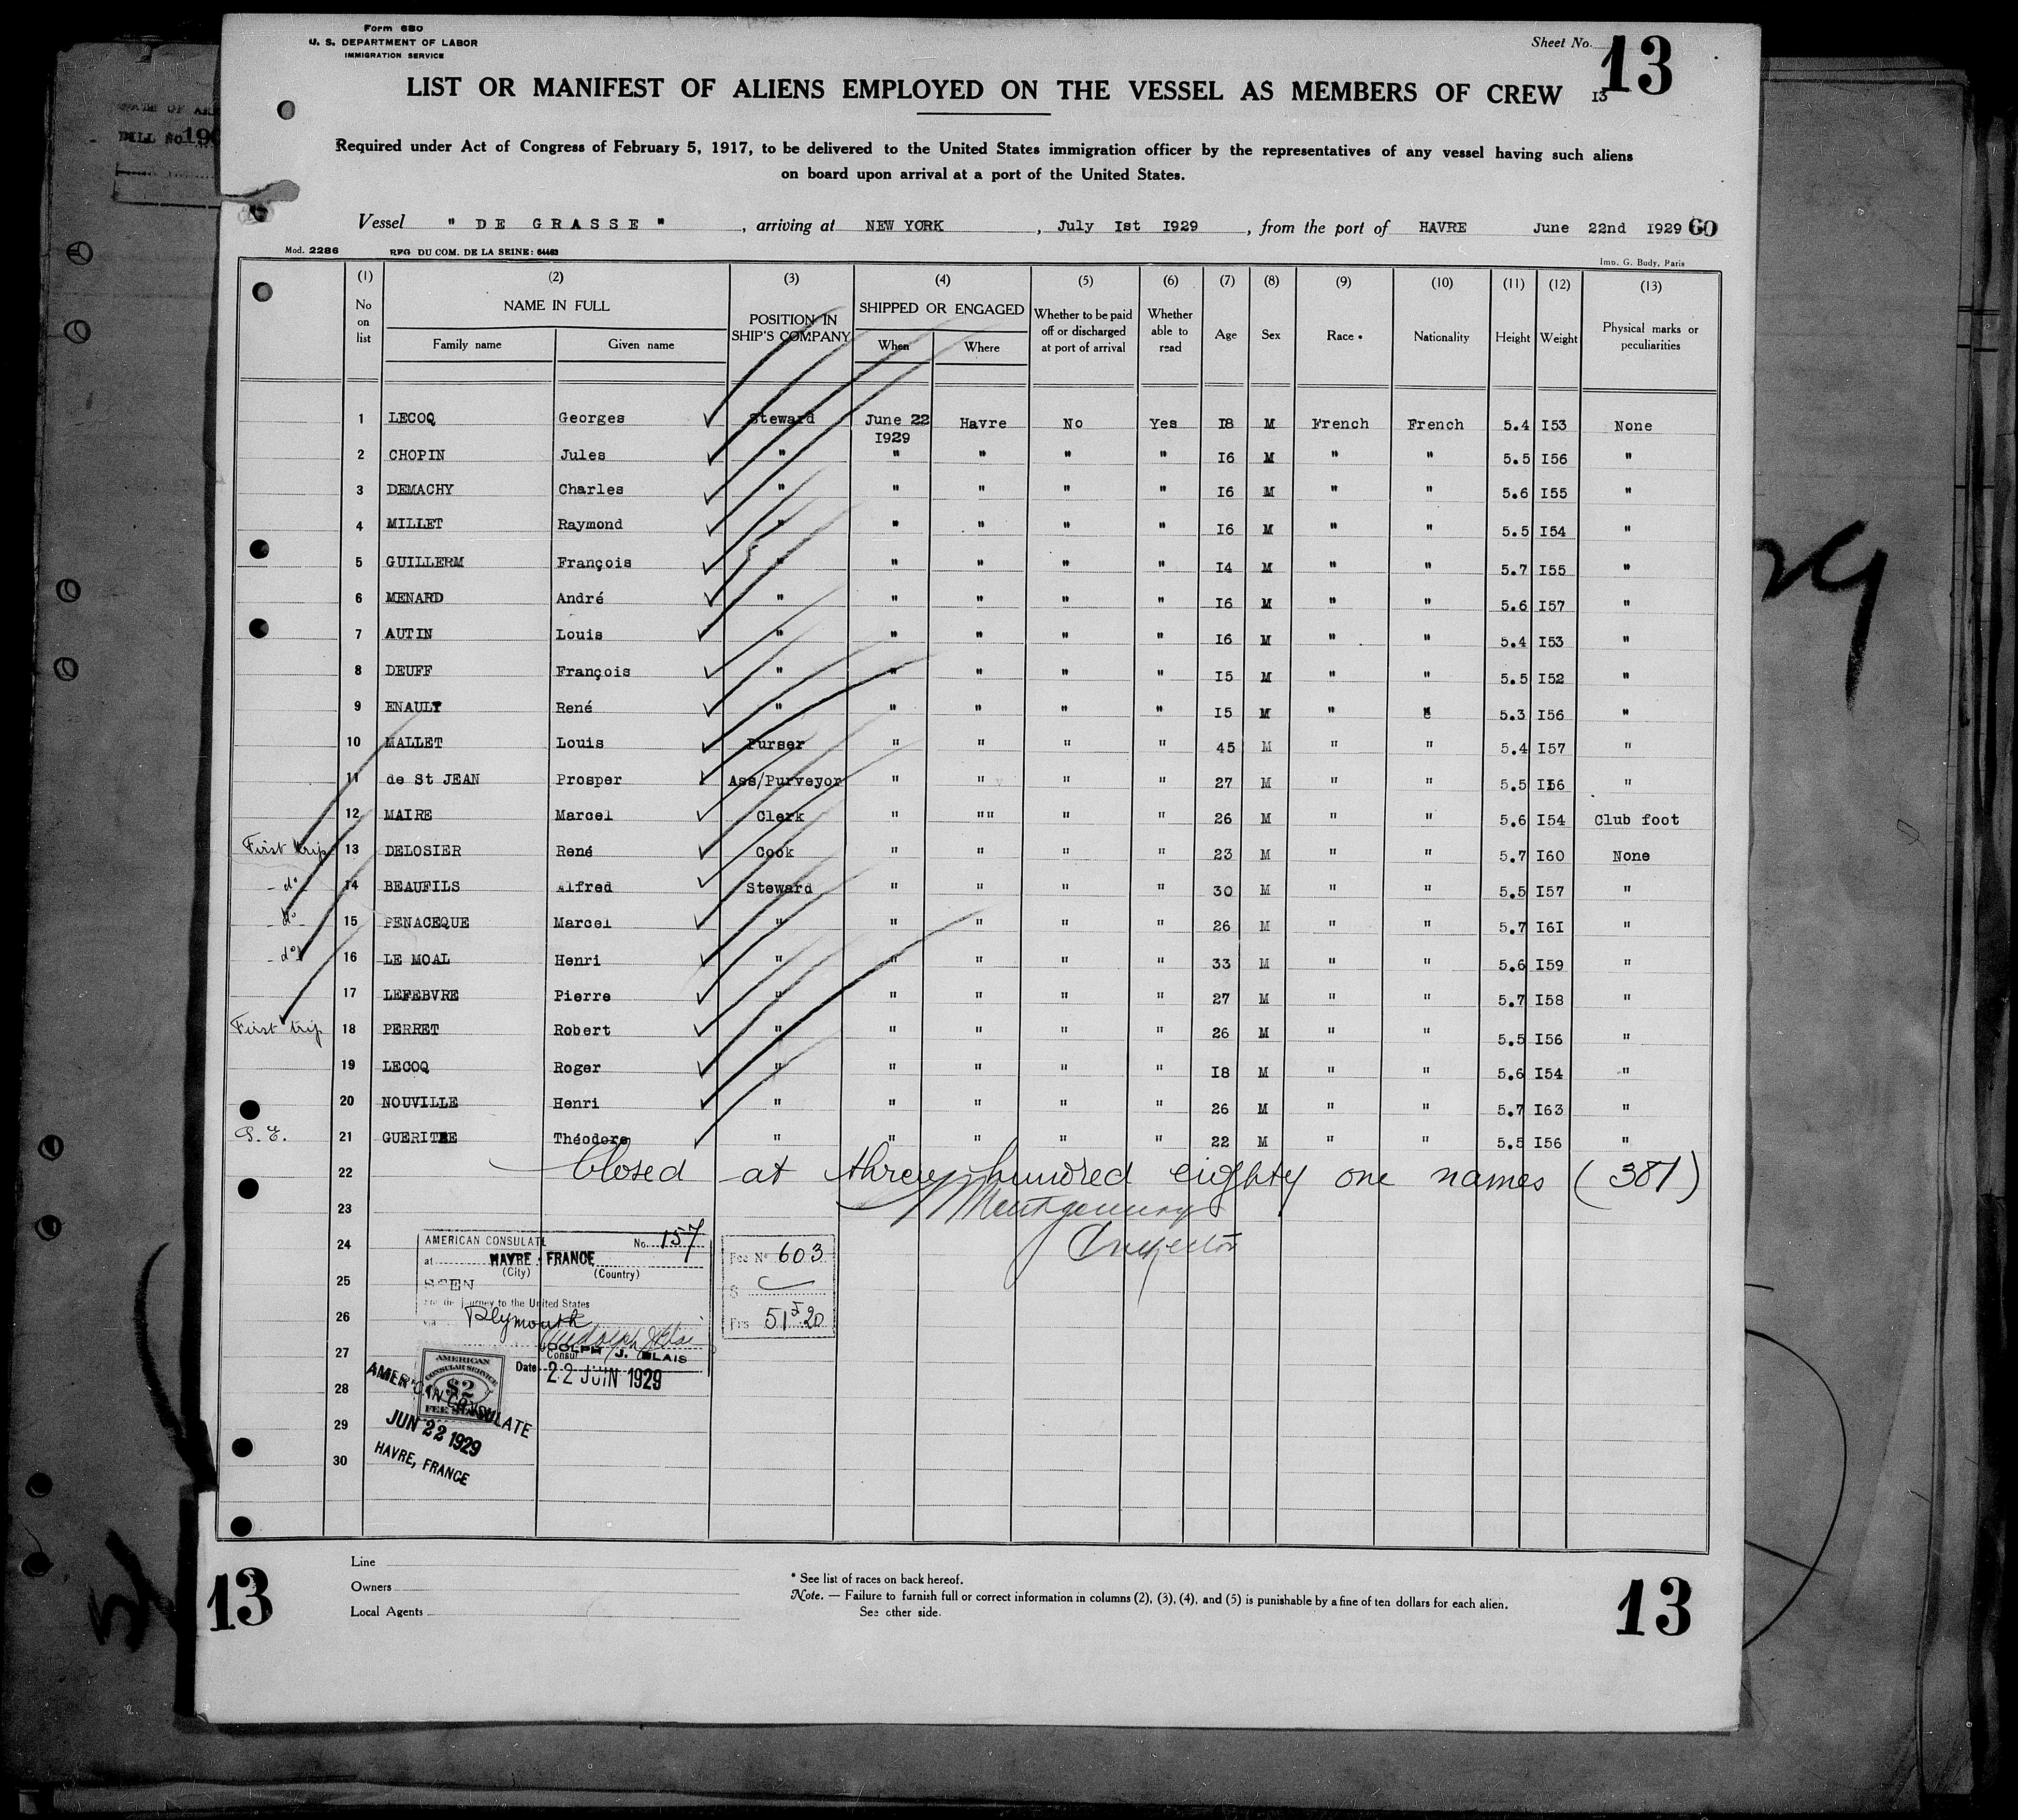 Form 680
U. S. DEPARTMENT OF LABOR
IMMIGRATION SERVICE
Sheet No. 13
13
LIST OR MANIFEST OF ALIENS EMPLOYED ON THE VESSEL AS MEMBERS OF CREW
Required under Act of Congress of February 5, 1917, to be delivered to the United States immigration officer by the representatives of any vessel having such aliens
on board upon arrival at a port of the United States.
Vessel " DE GRASSE " , arriving at NEW YORK , July Ist I929 , from the port of HAVRE June 22nd I929 60
Mod. 2286 RFG DU COM. DE LA SEINE: 64483
Imp. G. Budy, Paris
(1) (2) (3) (4) (5) (6) (7) (8) (9) (10) (11) (12) (13)
No on list NAME IN FULL Family name Given name POSITION IN SHIP'S COMPANY SHIPPED OR ENGAGED When Where Whether to be paid off or discharged at port of arrival Whether able to read Age Sex Race * Nationality Height Weight Physical marks or peculiarities
1 LECOQ Georges Steward June 22 I929 Havre No Yes I8 M French French 5.4 I53 None
2 CHOPIN Jules " " " " " I6 M " " 5.5 I56 "
3 DEMACHY Charles " " " " " I6 M " " 5.6 I55 "
4 MILLET Raymond " " " " " I6 M " " 5.5 I54 "
5 GUILLERM François " " " " " I4 M " " 5.7 I55 "
6 MENARD André " " " " " I6 M " " 5.6 I57 "
7 AUTIN Louis " " " " " I6 M " " 5.4 I53 "
8 DEUFF François " " " " " I5 M " " 5.5 I52 "
9 ENAULT René " " " " " I5 M " " 5.3 I56 "
10 MALLET Louis Purser " " " " 45 M " " 5.4 I57 "
11 de St JEAN Prosper Ass/Purveyor " " " " 27 M " " 5.5 I56 "
12 MAIRE Marcel Clerk " "" " " 26 M " " 5.6 I54 Club foot
First trip 13 DELOSIER René Cook " " " " 23 M " " 5.7 I60 None
- do 14 BEAUFILS Alfred Steward " " " " 30 M " " 5.5 I57 "
- do - 15 PENACEQUE Marcel " " " " " 26 M " " 5.7 I6I "
- do 16 LE MOAL Henri " " " " " 33 M " " 5.6 I59 "
17 LEFEBVRE Pierre " " " " " 27 M " " 5.7 I58 "
First trip 18 PERRET Robert " " " " " 26 M " " 5.5 I56 "
19 LECOQ Roger " " " " " I8 M " " 5.6 I54 "
20 NOUVILLE Henri " " " " " 26 M " " 5.7 I63 "
21 GUERITEE Théodore " " " " " 22 M " " 5.5 I56 "
22 Closed at three hundred eighty one names (381)
23 Montgomery
24 Inspector
25
26
27
28
29
30
AMERICAN CONSULATE No. 157
at HAVRE - FRANCE
(City) (Country)
SEEN
For the journey to the United States
via Plymouth
J. BLAIS
Consul
Date 22 JUIN 1929
Fee No 603
$
Frs 51 f 20
AMERICAN
CONSULAR SERVICE
$2
FEE STAMP
AMERICAN CONSULATE
JUN 22 1929
HAVRE, FRANCE
Line
Owners
Local Agents
* See list of races on back hereof.
Note. — Failure to furnish full or correct information in columns (2), (3), (4), and (5) is punishable by a fine of ten dollars for each alien.
See other side.
13
13